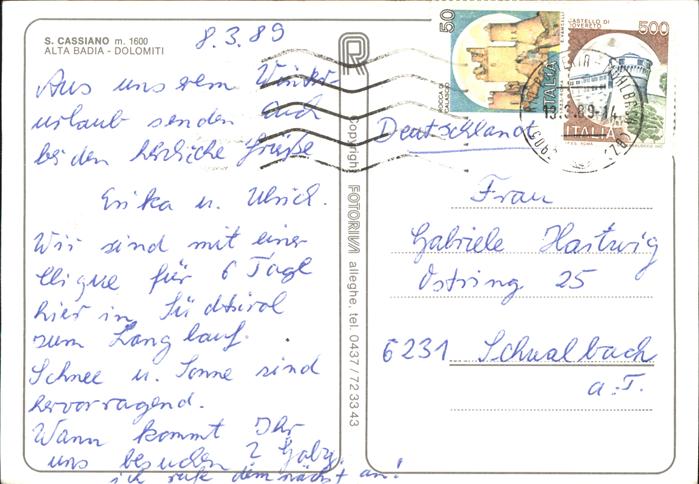 S. CASSIANO m. 1600
ALTA BADIA - DOLOMITI
8.3.89
Aus unserem Winter
urlaub senden Euch
beiden herzliche Grüße
Erika u. Ulrich.
Wir sind mit einer
Clique für 6 Tage
hier in Südtirol
zum Langlauf.
Schnee u. Sonne sind
hervorragend.
Wann kommt Ihr
uns besuchen? Gaby
ich rufe demnächst an!
R
Copyright FOTORIVA alleghe, tel. 0437/723343
50
ITALIA
ROCCA DI
CASTELLO DI
ROVERETO
500
ITALIA
13.3.89-14
Deutschland
Frau
Gabriele Hartwig
Ostring 25
6231 Schwalbach
a.T.